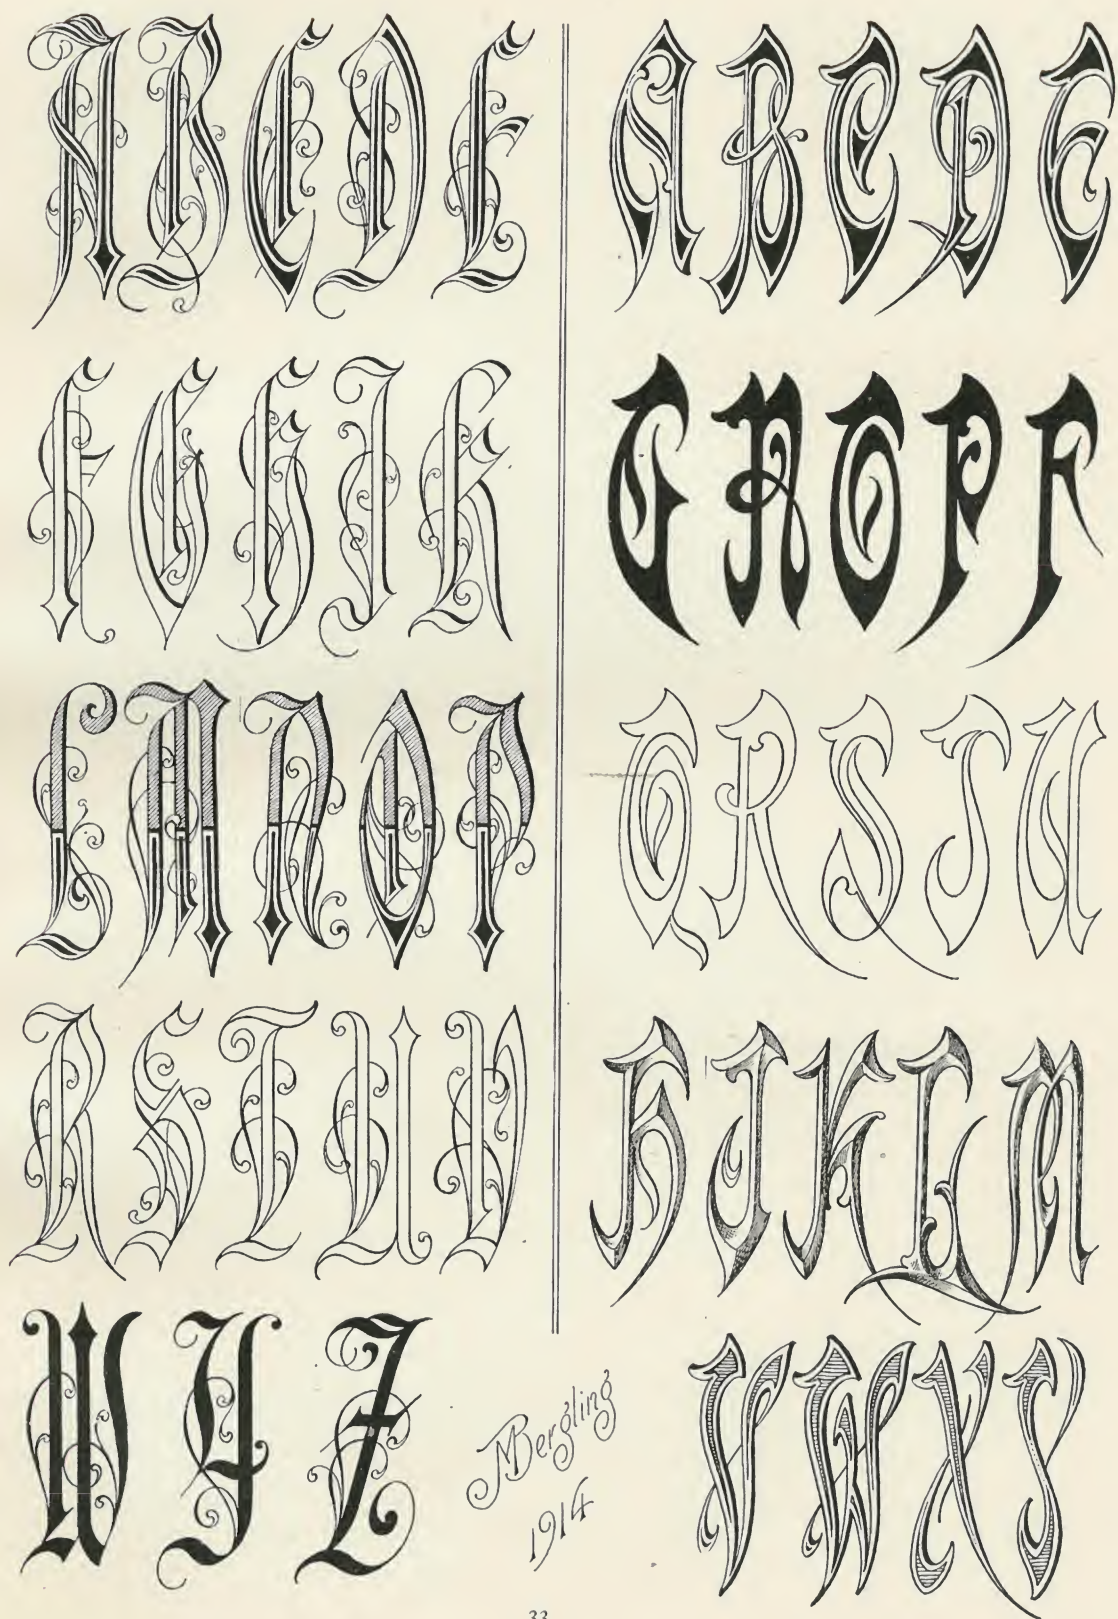 A B C D E
F G H I K
L M N O P
R S T U V
W Y Z
A B C D E
G N O P F
Q R S T U
H J K L M
V W X Y
JMBergling
1914
33